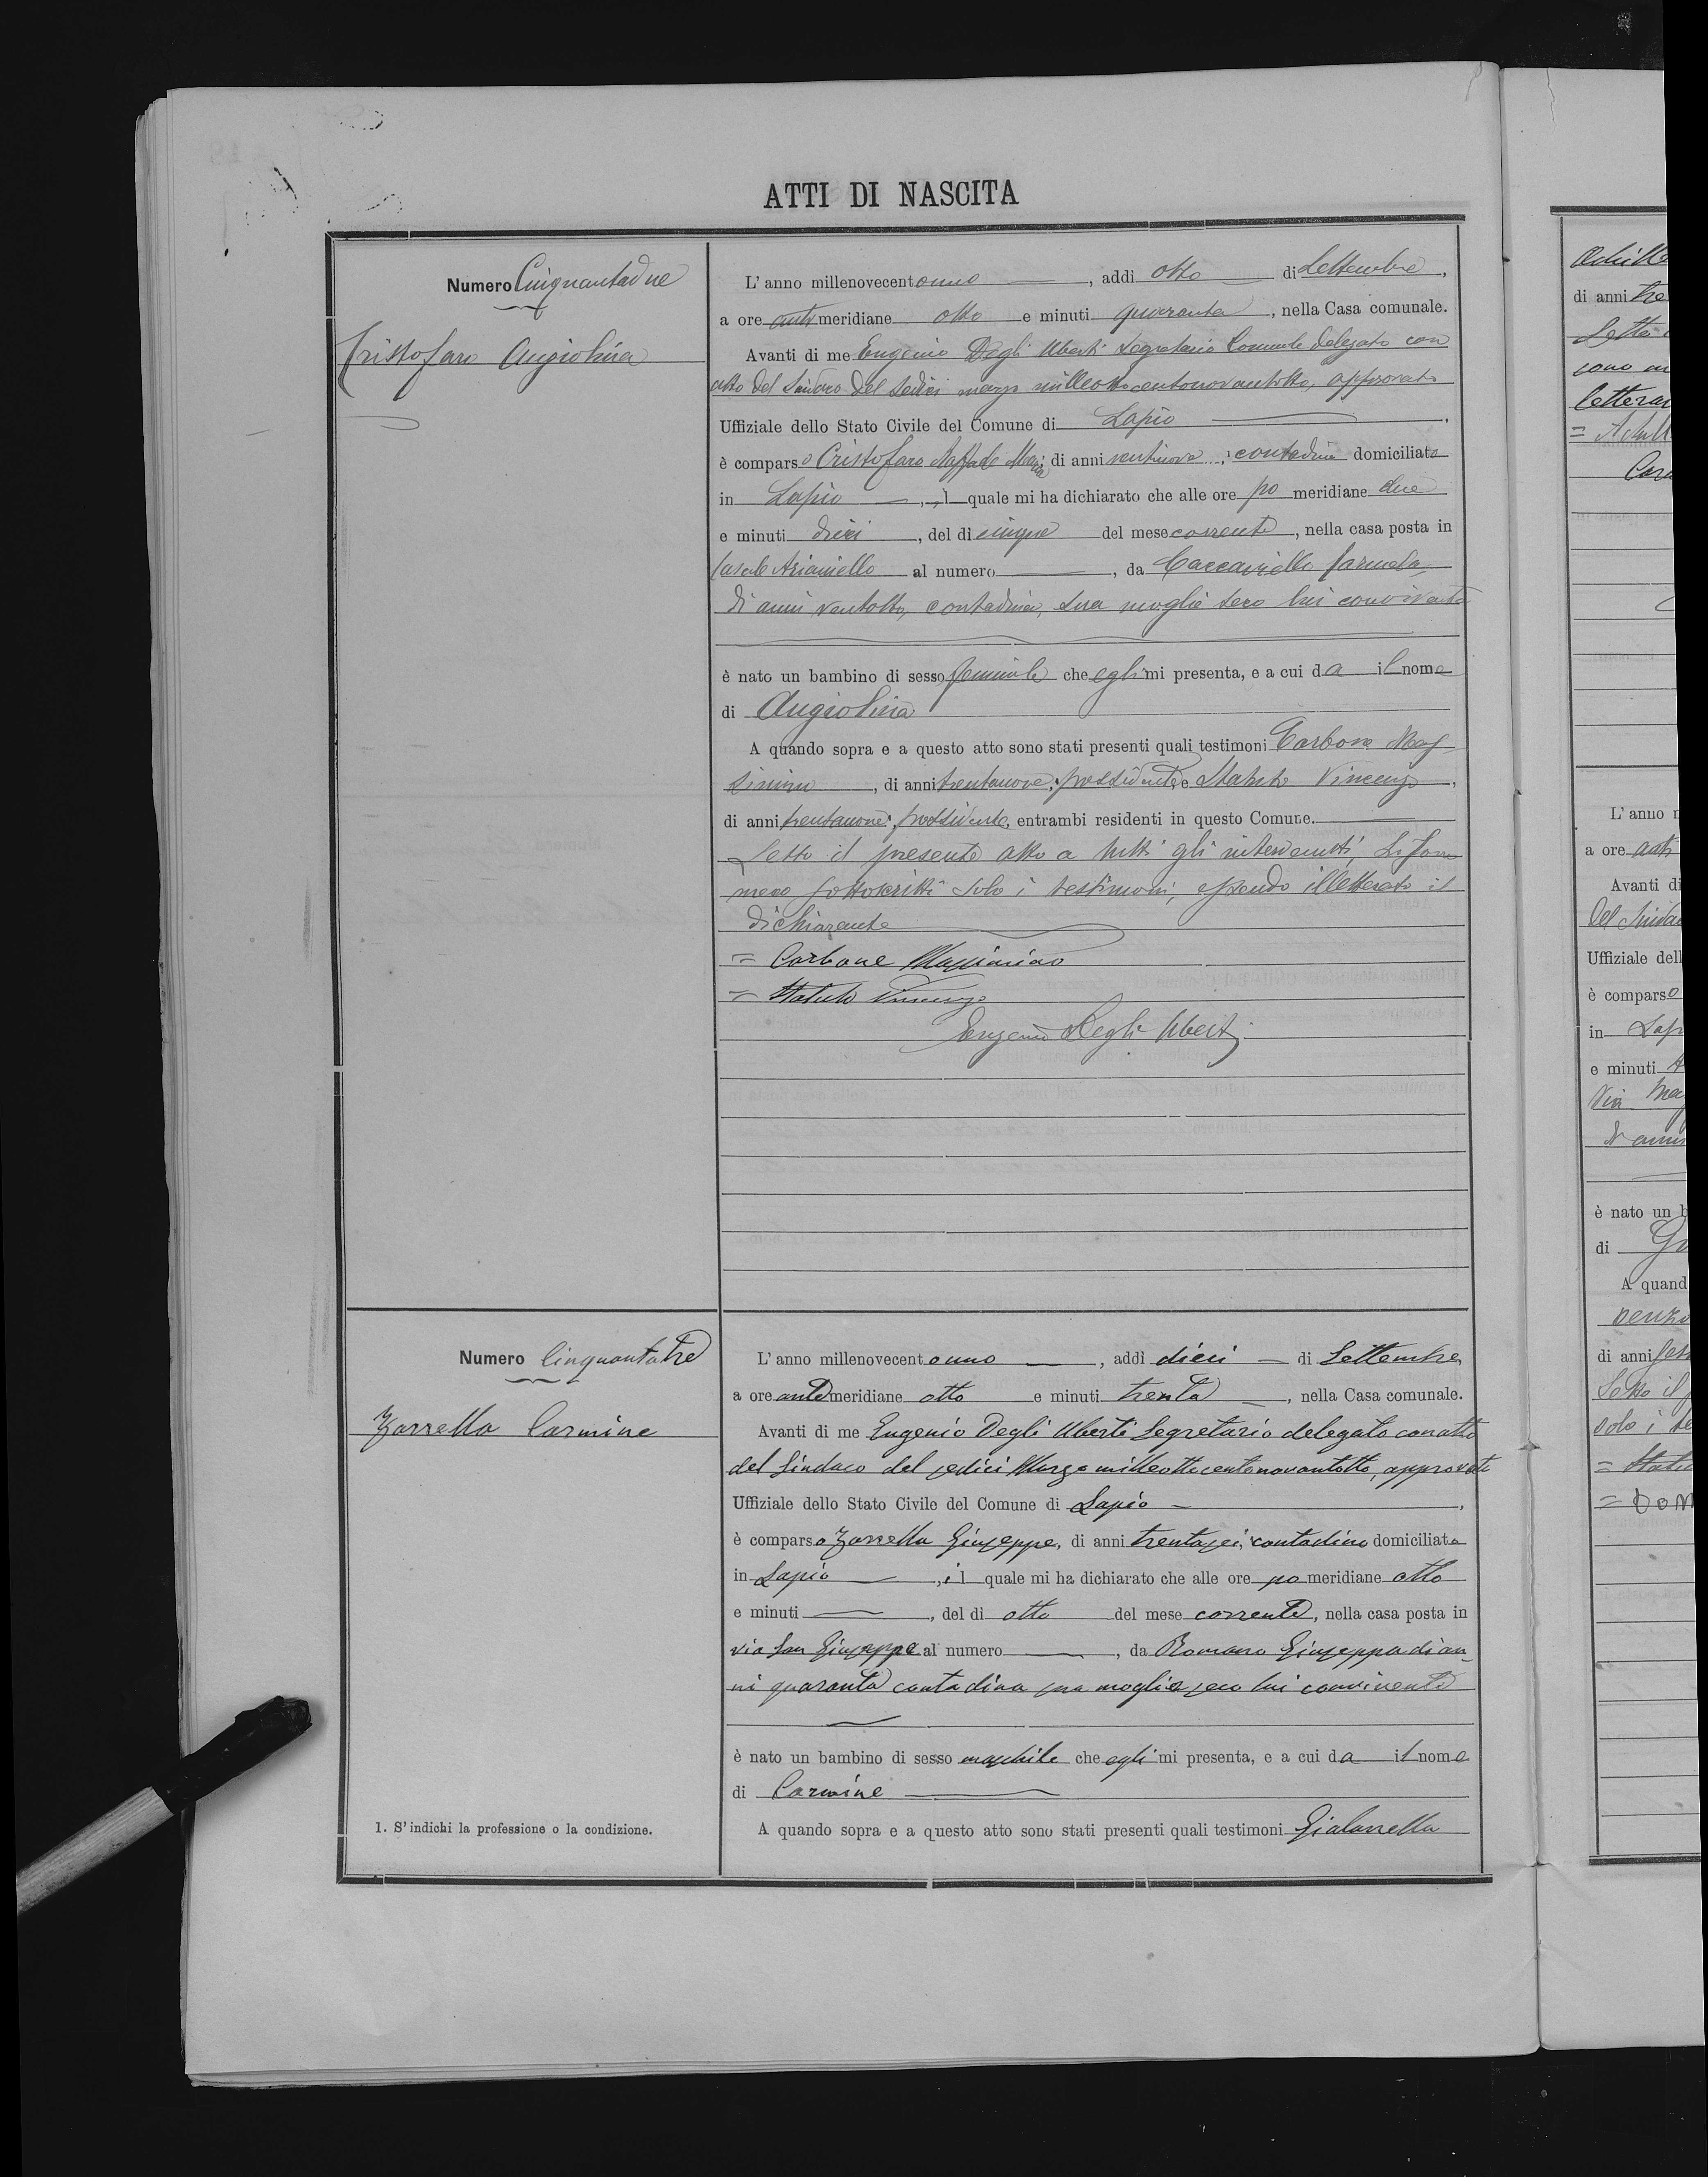 ATTI DI NASCITA
Numero Cinquantadue
Cristofaro Angiolina
L'anno millenovecentonno, addi otto di Settembre,
a ore anti meridiane otto e minuti quaranta, nella Casa comunale.
Avanti di me Eugenio Degli Uberti Segretario Comunale delegato con
atto del Sindaco del sedici marzo milleottocentonovantotto, approvato
Uffiziale dello Stato Civile del Comune di Lapio.
è comparso Cristofaro Raffaele, di anni ventinove, contadino domiciliato
in Lapio, il quale mi ha dichiarato che alle ore po meridiane due
e minuti dieci, del di cinque del mese corrente, nella casa posta in
Casale Arianiello al numero, da Caccaviello Carmela
di anni ventotto, contadina, sua moglie seco lui convivente
è nato un bambino di sesso feminile che egli mi presenta, e a cui da il nome
di Angiolina
A quando sopra e a questo atto sono stati presenti quali testimoni Carbone Mas
simino, di anni trentanove, possidente, e Statuto Vincenzo,
di anni trentanove, possidente, entrambi residenti in questo Comune.
Letto il presente atto a tutti gli intervenuti, si sono
meco sottoscritti solo i testimoni, essendo illetterato il
dichiarante
= Carbone Massimino
= Statuto Vincenzo
Eugenio Degli Uberti
Numero Cinquantatre
Zarrella Carmine
L'anno millenovecentonno, addì dieci di Settembre,
a ore antemeridiane otto e minuti trenta, nella Casa comunale.
Avanti di me Eugenio Degli Uberti Segretario delegato con atto
del Sindaco del sedici Marzo milleottocentonovantotto, approvato
Uffiziale dello Stato Civile del Comune di Lapio,
è comparso Zarrella Giuseppe, di anni trentasei, contadino domiciliato
in Lapio, il quale mi ha dichiarato che alle ore po meridiane otto
e minuti, del di otto del mese corrente, nella casa posta in
via San Giuseppe al numero, da Romano Giuseppa di an
ni quaranta contadina sua moglie seco lui convivente
è nato un bambino di sesso maschile che egli mi presenta, e a cui da il nome
di Carmine
A quando sopra e a questo atto sono stati presenti quali testimoni Gialanella
1. S'indichi la professione o la condizione.
di anni tre
L'anno
a ore
Avanti di
Uffiziale dell
è comparso
in Lap
e minuti
Via
è nato un b
di
A quand
di anni